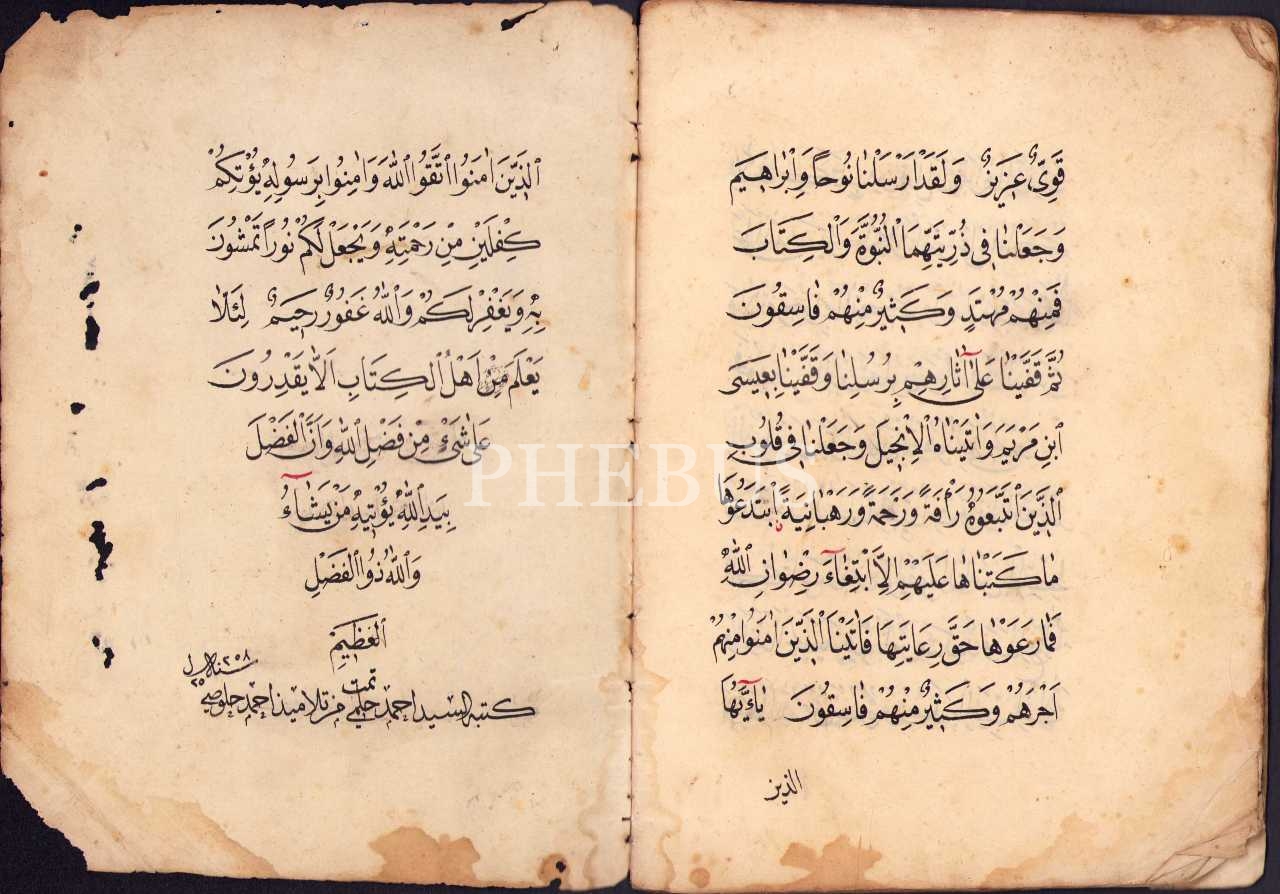 قَوِيٌّ عَزِيزٌ وَلَقَدْ اَرْسَلْنَا نُوحًا وَاِبْرٰاهِيمَ
وَجَعَلْنَا فِي ذُرِّيَّتِهِمَا النُّبُوَّةَ وَالْكِتَابَ
فَمِنْهُمْ مُهْتَدٍ وَكَثِيرٌ مِنْهُمْ فَاسِقُونَ
ثُمَّ قَفَّيْنَا عَلٰٓى اٰثَارِهِمْ بِرُسُلِنَا وَقَفَّيْنَا بِعِيسَى
ابْنِ مَرْيَمَ وَاٰتَيْنَاهُ الْاِنْجِيلَ وَجَعَلْنَا فِي قُلُوبِ
الَّذِينَ اتَّبَعُوهُ رَأْفَةً وَرَحْمَةً وَرَهْبَانِيَةً ابْتَدَعُوهَا
مَا كَتَبْنَاهَا عَلَيْهِمْ اِلَّا ابْتِغَٓاءَ رِضْوَانِ اللّٰهِ
فَمَا رَعَوْهَا حَقَّ رِعَايَتِهَا فَاٰتَيْنَا الَّذِينَ اٰمَنُوا مِنْهُمْ
اَجْرَهُمْ وَكَثِيرٌ مِنْهُمْ فَاسِقُونَ يَٓا اَيُّهَا
الذين
الَّذِينَ اٰمَنُوا اتَّقُوا اللّٰهَ وَاٰمِنُوا بِرَسُولِهِ يُؤْتِكُمْ
كِفْلَيْنِ مِنْ رَحْمَتِهِ وَيَجْعَلْ لَكُمْ نُورًا تَمْشُونَ
بِهِ وَيَغْفِرْ لَكُمْ وَاللّٰهُ غَفُورٌ رَحِيمٌ لِئَلَّا
يَعْلَمَ مِنْ اَهْلُ الْكِتَابِ اَلَّا يَقْدِرُونَ
عَلٰى شَيْءٍ مِنْ فَضْلِ اللّٰهِ وَاَنَّ الْفَضْلَ
بِيَدِ اللّٰهِ يُؤْتِيهِ مَنْ يَشَٓاءُ
وَاللّٰهُ ذُو الْفَضْلِ
الْعَظِيمِ
تمت
كتبه السيد احمد حلمي من تلاميذ احمد خلوصي
سنة
PHEBUS